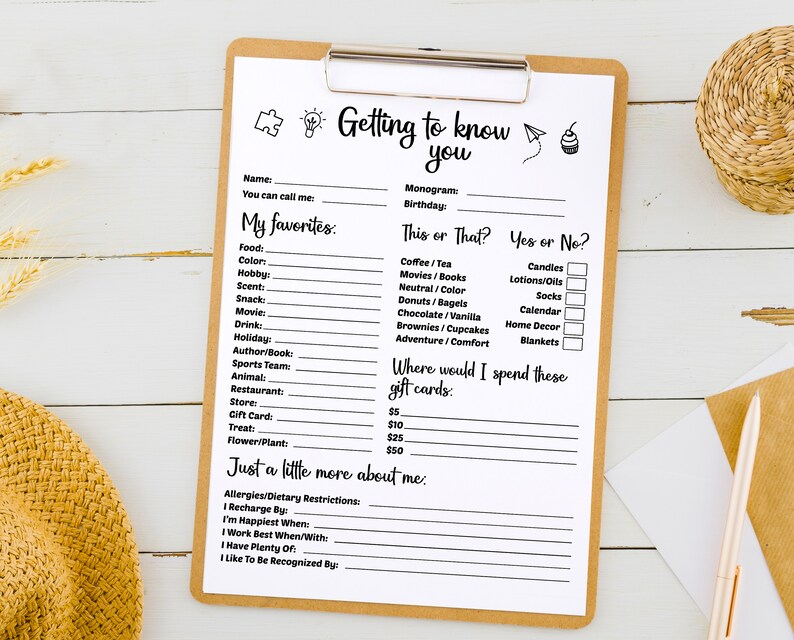 Getting to know
you
Name:
You can call me:
Monogram:
Birthday:
My favorites:
Food:
Color:
Hobby:
Scent:
Snack:
Movie:
Drink:
Holiday:
Author/Book:
Sports Team:
Animal:
Restaurant:
Store:
Gift Card:
Treat:
Flower/Plant:
This or That?
Coffee / Tea
Movies / Books
Neutral / Color
Donuts / Bagels
Chocolate / Vanilla
Brownies / Cupcakes
Adventure / Comfort
Yes or No?
Candles
Lotions/Oils
Socks
Calendar
Home Decor
Blankets
Where would I spend these
gift cards:
$5
$10
$25
$50
Just a little more about me:
Allergies/Dietary Restrictions:
I Recharge By:
I'm Happiest When:
I Work Best When/With:
I Have Plenty Of:
I Like To Be Recognized By: